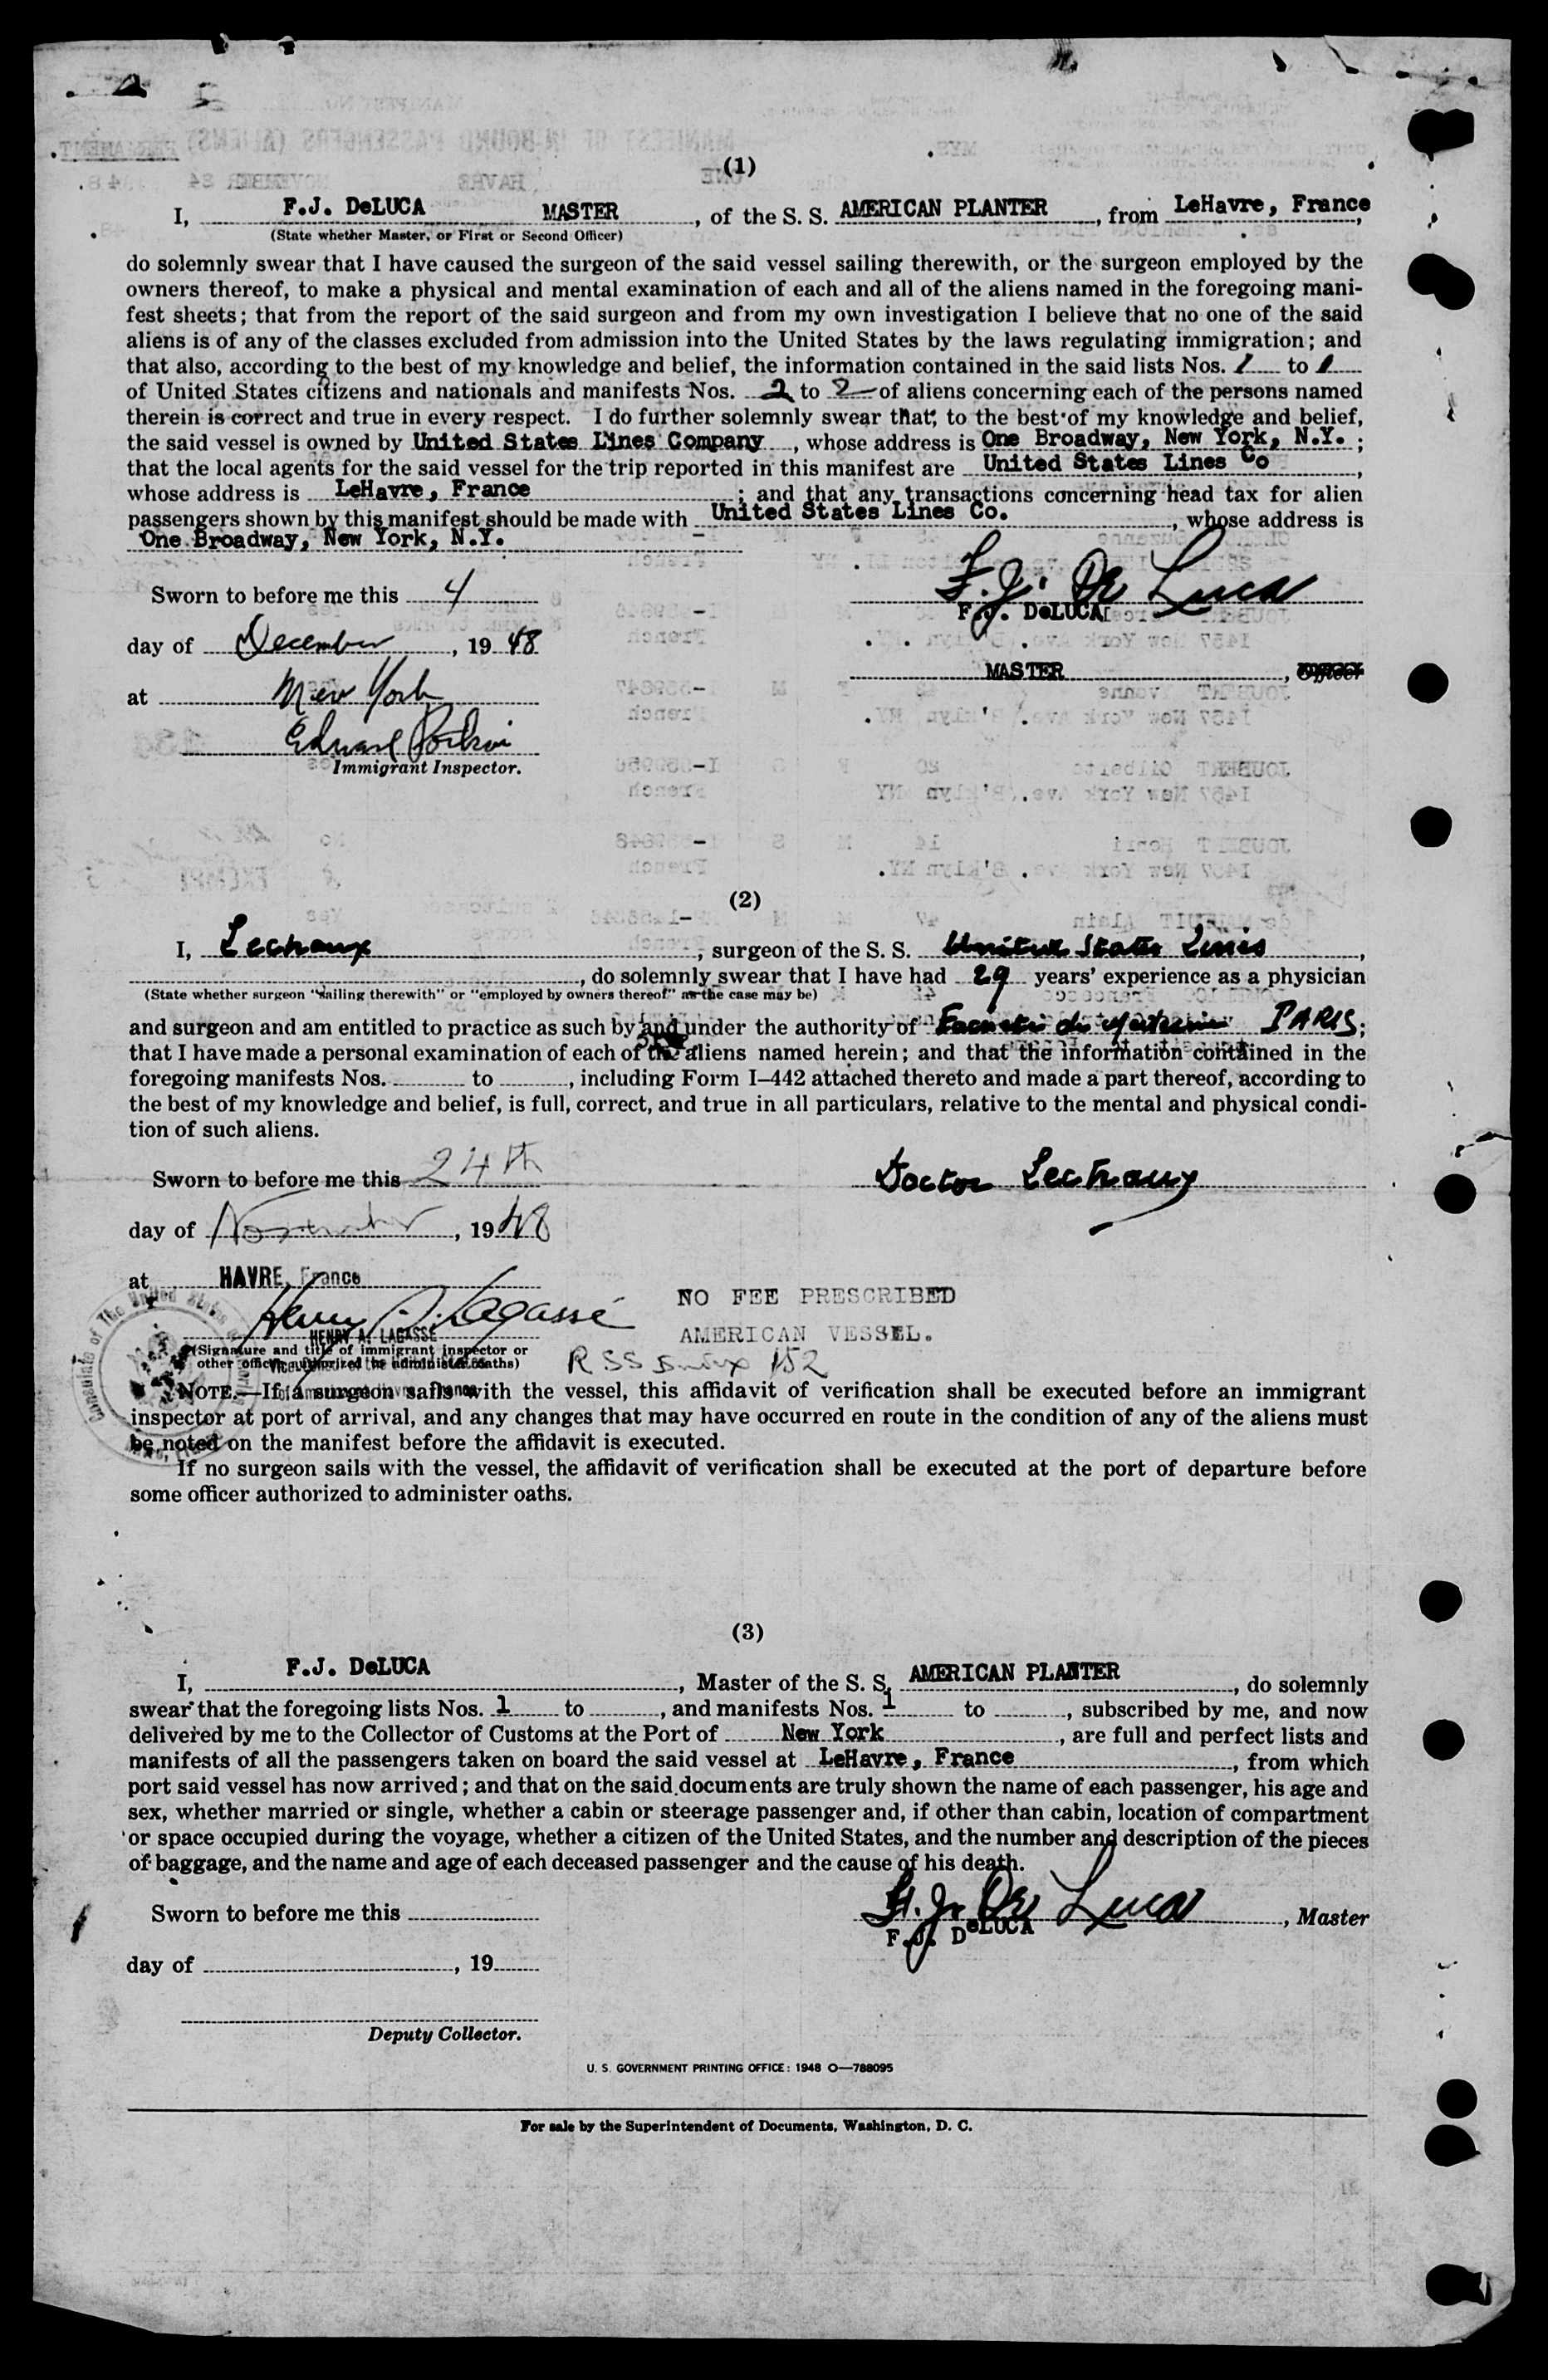 (1)
I, F.J. DeLUCA MASTER, of the S. S. AMERICAN PLANTER, from LeHavre, France,
(State whether Master, or First or Second Officer)
do solemnly swear that I have caused the surgeon of the said vessel sailing therewith, or the surgeon employed by the
owners thereof, to make a physical and mental examination of each and all of the aliens named in the foregoing mani-
fest sheets; that from the report of the said surgeon and from my own investigation I believe that no one of the said
aliens is of any of the classes excluded from admission into the United States by the laws regulating immigration; and
that also, according to the best of my knowledge and belief, the information contained in the said lists Nos. 1 to 1
of United States citizens and nationals and manifests Nos. 2 to 2 of aliens concerning each of the persons named
therein is correct and true in every respect. I do further solemnly swear that, to the best of my knowledge and belief,
the said vessel is owned by United States Lines Company, whose address is One Broadway, New York, N.Y.;
that the local agents for the said vessel for the trip reported in this manifest are United States Lines Co,
whose address is LeHavre, France; and that any transactions concerning head tax for alien
passengers shown by this manifest should be made with United States Lines Co., whose address is
One Broadway, New York, N.Y.
F. J. De Luca
Sworn to before me this 4
F.J. DeLUCA
day of December, 1948
MASTER, Officer
at New York
Edward
Immigrant Inspector.
(2)
I, Lechaux, surgeon of the S. S. United States Lines,
, do solemnly swear that I have had 29 years' experience as a physician
(State whether surgeon "sailing therewith" or "employed by owners thereof" as the case may be)
and surgeon and am entitled to practice as such by and under the authority of PARIS;
that I have made a personal examination of each of the aliens named herein; and that the information contained in the
foregoing manifests Nos. to , including Form I–442 attached thereto and made a part thereof, according to
the best of my knowledge and belief, is full, correct, and true in all particulars, relative to the mental and physical condi-
tion of such aliens.
Sworn to before me this 24th
Doctor Lechaux
day of November, 1948
at HAVRE, France
Henry A. Lagassé
NO FEE PRESCRIBED
HENRY A. LAGASSE
AMERICAN VESSEL.
(Signature and title of immigrant inspector or
other officer authorized to administer oaths)
152
NOTE.—If a surgeon sails with the vessel, this affidavit of verification shall be executed before an immigrant
inspector at port of arrival, and any changes that may have occurred en route in the condition of any of the aliens must
be noted on the manifest before the affidavit is executed.
If no surgeon sails with the vessel, the affidavit of verification shall be executed at the port of departure before
some officer authorized to administer oaths.
(3)
I, F.J. DeLUCA, Master of the S. S. AMERICAN PLANTER, do solemnly
swear that the foregoing lists Nos. 1 to , and manifests Nos. 1 to , subscribed by me, and now
delivered by me to the Collector of Customs at the Port of New York, are full and perfect lists and
manifests of all the passengers taken on board the said vessel at LeHavre, France, from which
port said vessel has now arrived; and that on the said documents are truly shown the name of each passenger, his age and
sex, whether married or single, whether a cabin or steerage passenger and, if other than cabin, location of compartment
or space occupied during the voyage, whether a citizen of the United States, and the number and description of the pieces
of baggage, and the name and age of each deceased passenger and the cause of his death.
Sworn to before me this
F. J. De Luca, Master
F.J. DeLUCA
day of , 19
Deputy Collector.
U. S. GOVERNMENT PRINTING OFFICE: 1948 O—788095
For sale by the Superintendent of Documents, Washington, D. C.